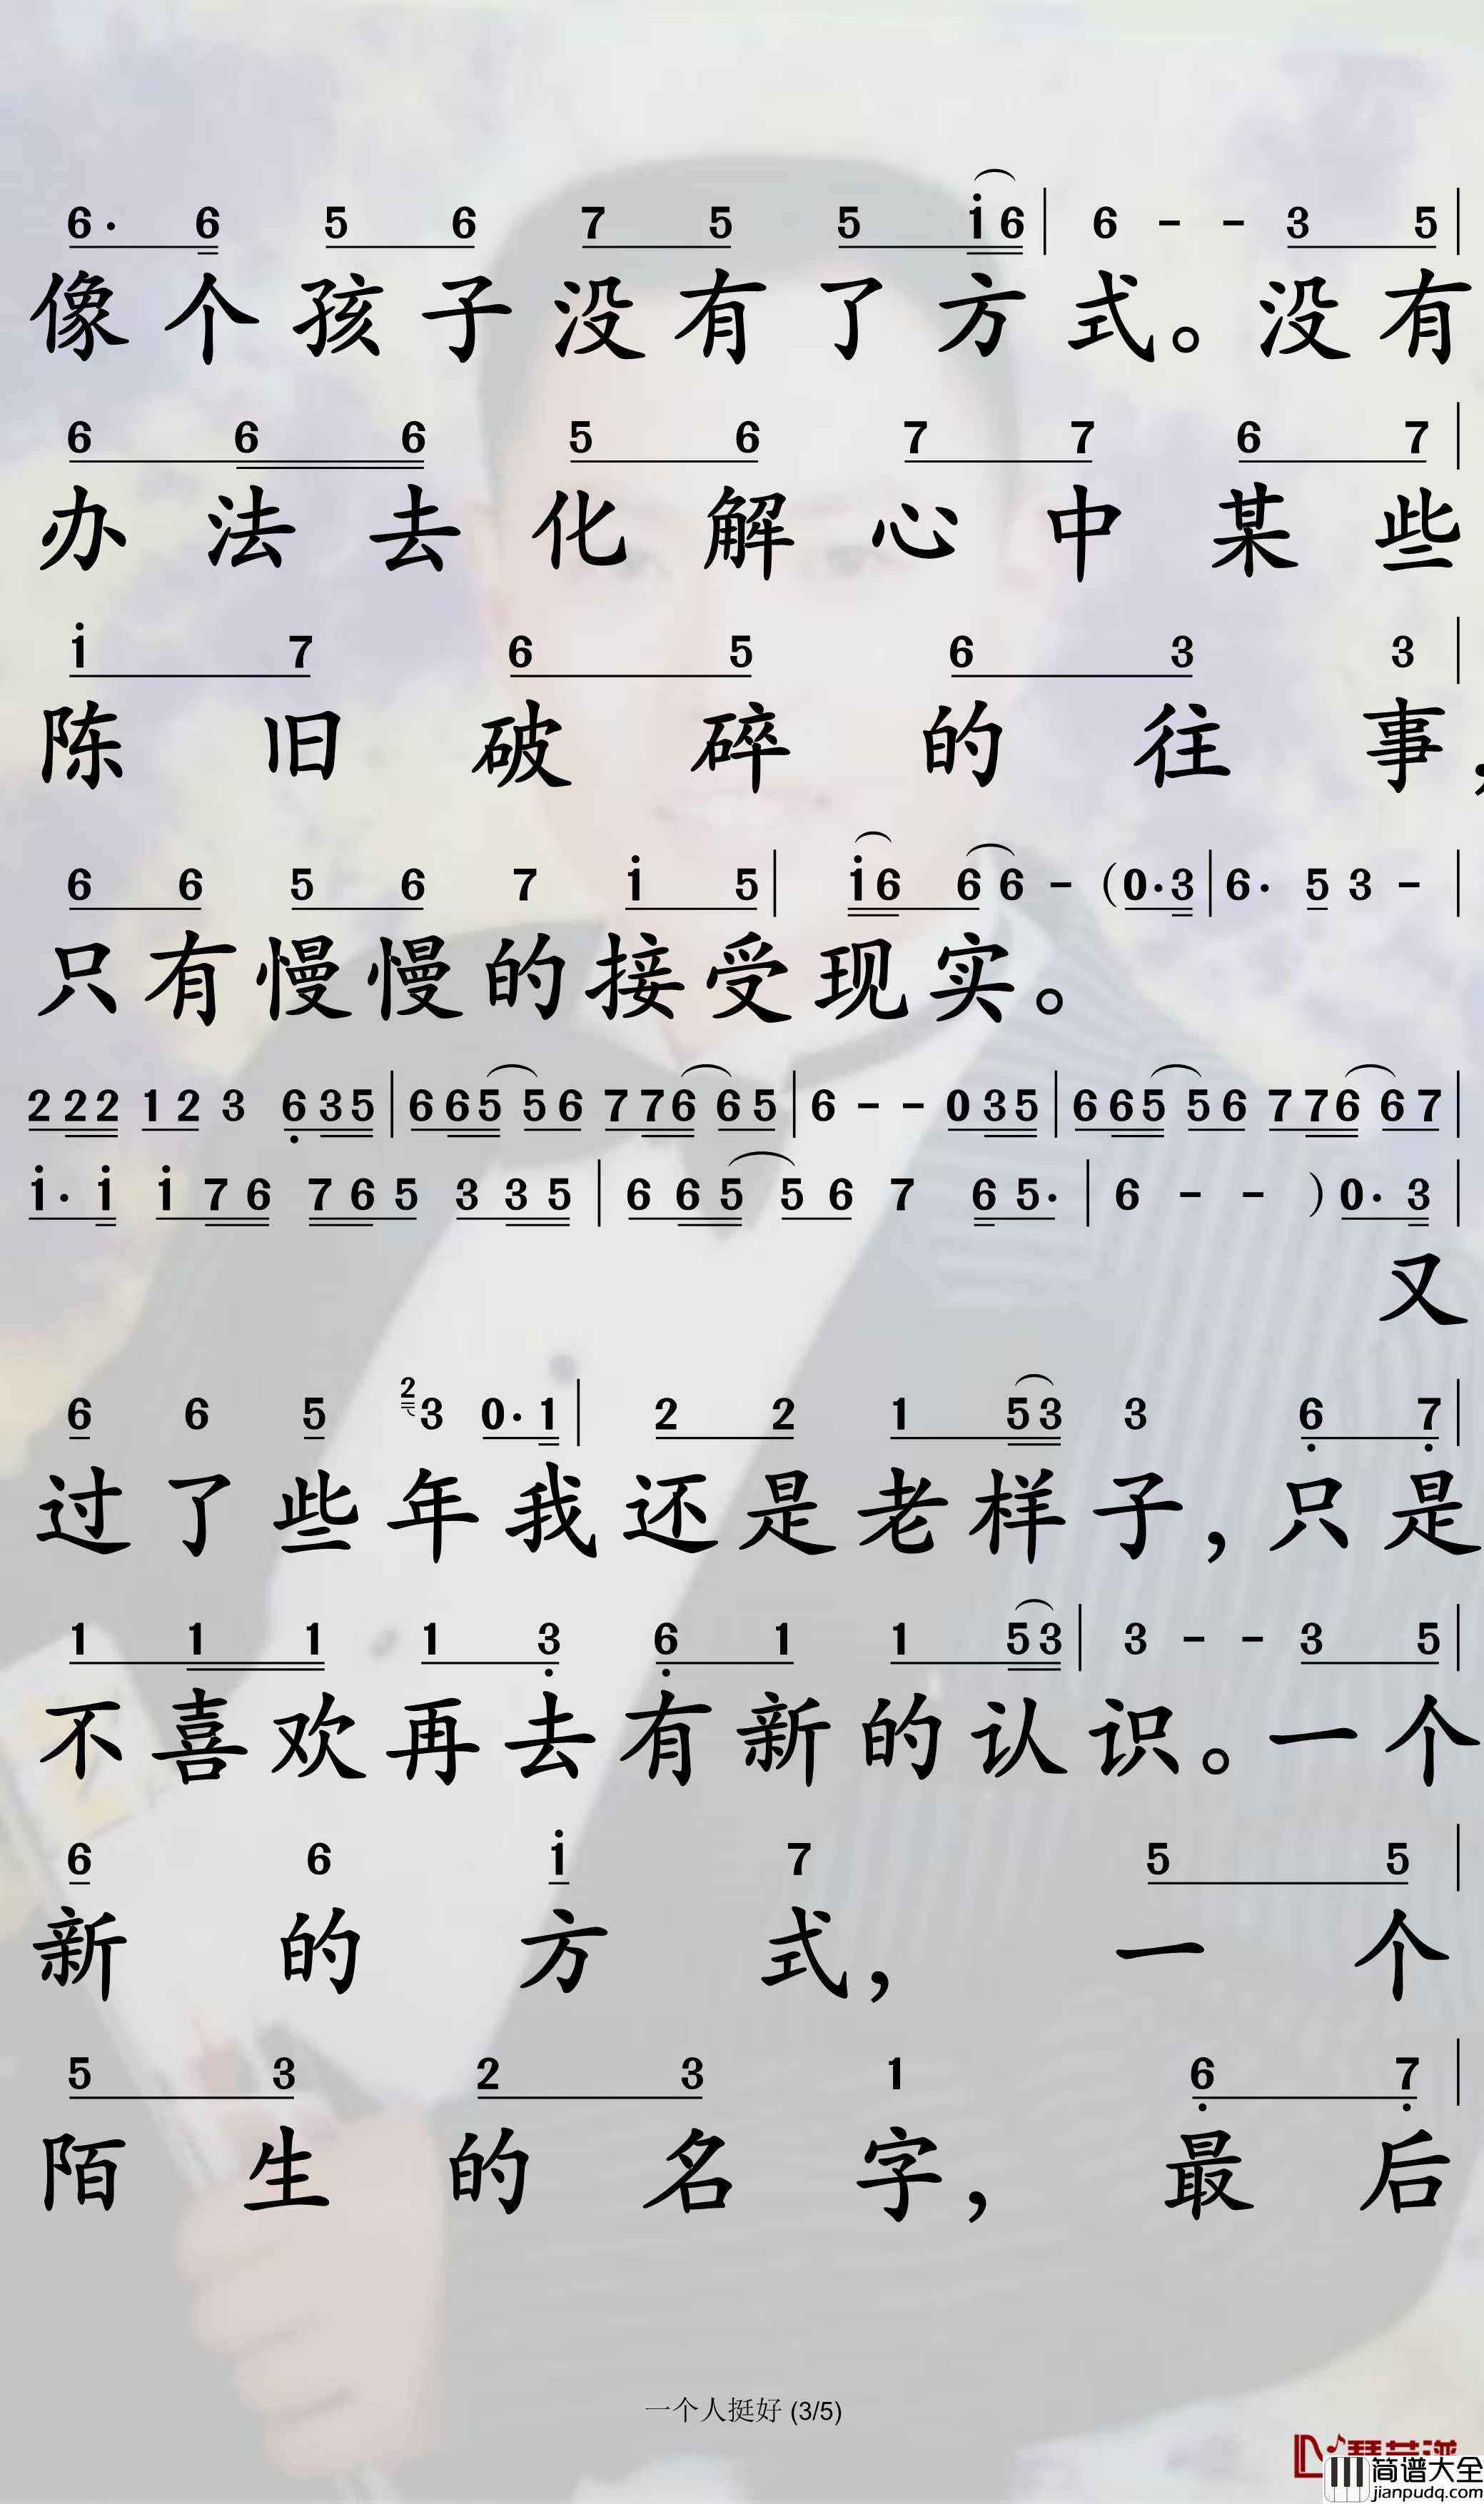 6· 6 5 6 7 5 5 i 6 | 6 - - 3 5 |
像个孩子没有了方式。没有
6 6 6 5 6 7 7 6 7 |
办法去化解心中某些
i 7 6 5 6 3 3 |
陈旧破碎的往事,
6 6 5 6 7 i 5 | i 6 6 6 - (0·3 | 6· 5 3 - |
只有慢慢的接受现实。
2 2 2 1 2 3 6 3 5 | 6 6 5 5 6 7 7 6 6 5 | 6 - - 0 3 5 | 6 6 5 5 6 7 7 6 6 7 |
i· i i 7 6 7 6 5 3 3 5 | 6 6 5 5 6 7 6 5· | 6 - - ) 0· 3 |
又
6 6 5 2 3 0· 1 | 2 2 1 5 3 3 6 7 |
过了些年我还是老样子,只是
1 1 1 1 3 6 1 1 5 3 | 3 - - 3 5 |
不喜欢再去有新的认识。一个
6 6 i 7 5 5 |
新的方式,一个
5 3 2 3 1 6 7 |
陌生的名字,最后
一个人挺好 (3/5)
简谱大全
jianpudq.com